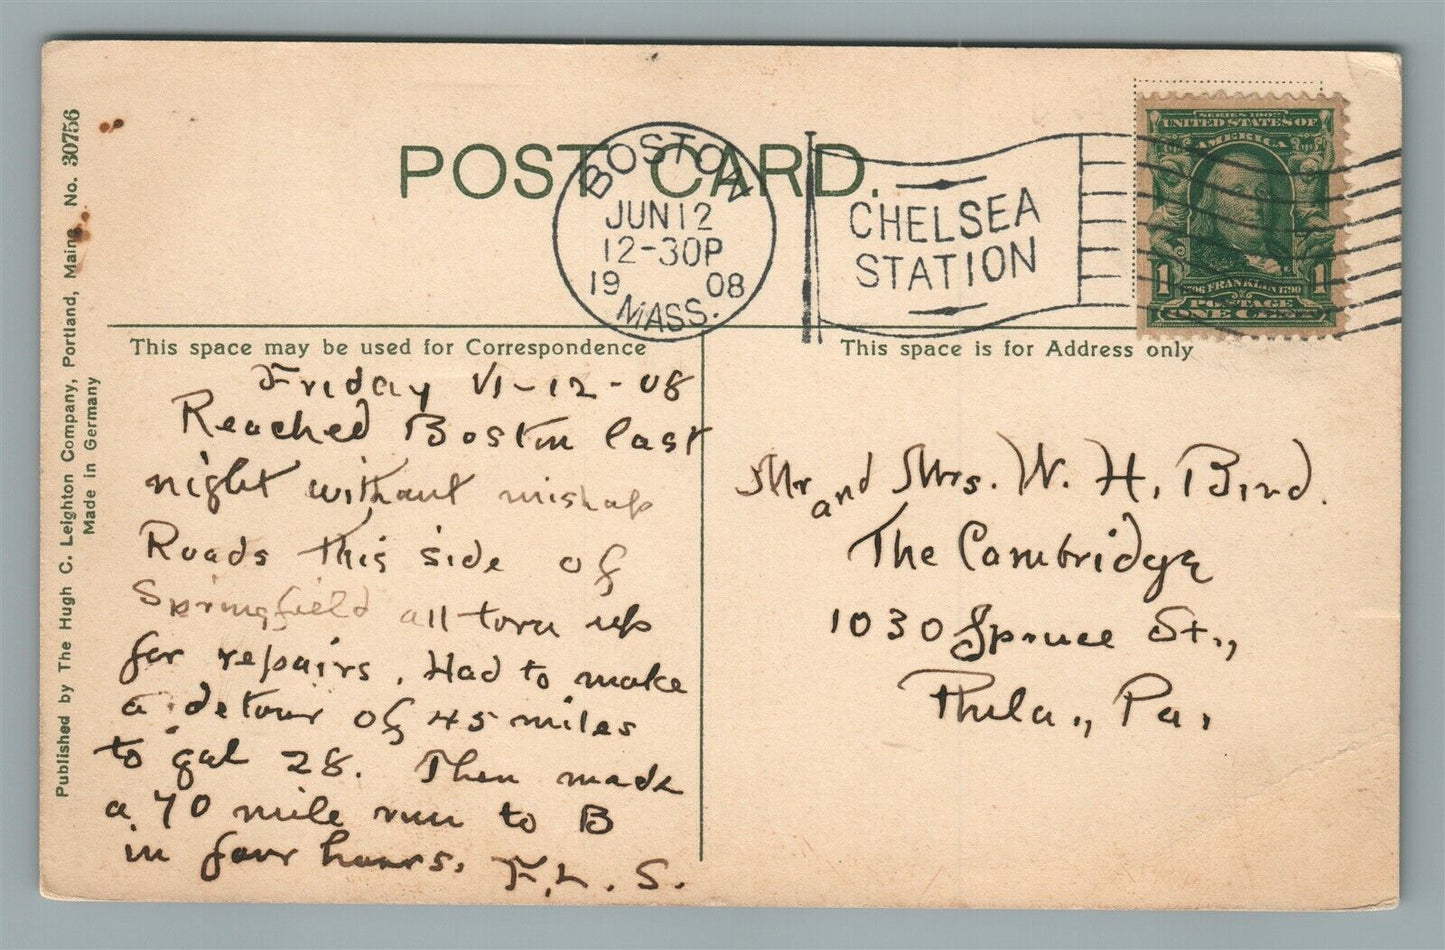 POST CARD.
BOSTON
JUN 12
12-30P
19 08
MASS.
CHELSEA
STATION
SERIES 1902
UNITED STATES OF
AMERICA
1706 FRANKLIN 1790
1 1
POSTAGE
ONE CENT
This space may be used for Correspondence
This space is for Address only
Friday VI-12-08
Reached Boston last
night without mishap
Roads this side of
Springfield all torn up
for repairs. Had to make
a detour of 45 miles
to gat 28. Then made
a 70 mile run to B
in four hours. F.L.S.
Mr and Mrs. W. H. Bird.
The Cambridge
1030 Spruce St.,
Phila., Pa.
Published by The Hugh C. Leighton Company, Portland, Maine. No. 30756
Made in Germany